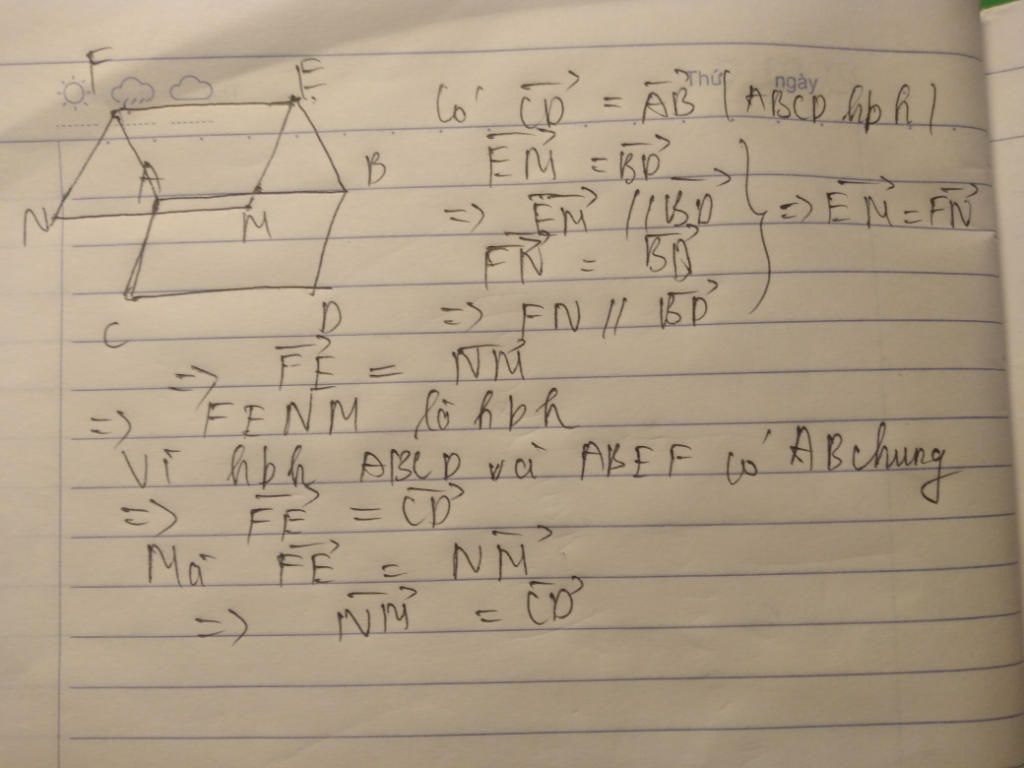 F E
Thứ ngày
Có CD = AB (ABCD hbh)
A B
EM = BD
N M
=> EM // BD
=> EM = FN
FN = BD
C D
=> FN // BD
=> FE = NM
=> FENM là hbh
Vì hbh ABCD và ABEF có AB chung
=> FE = CD
Mà FE = NM
=> NM = CD